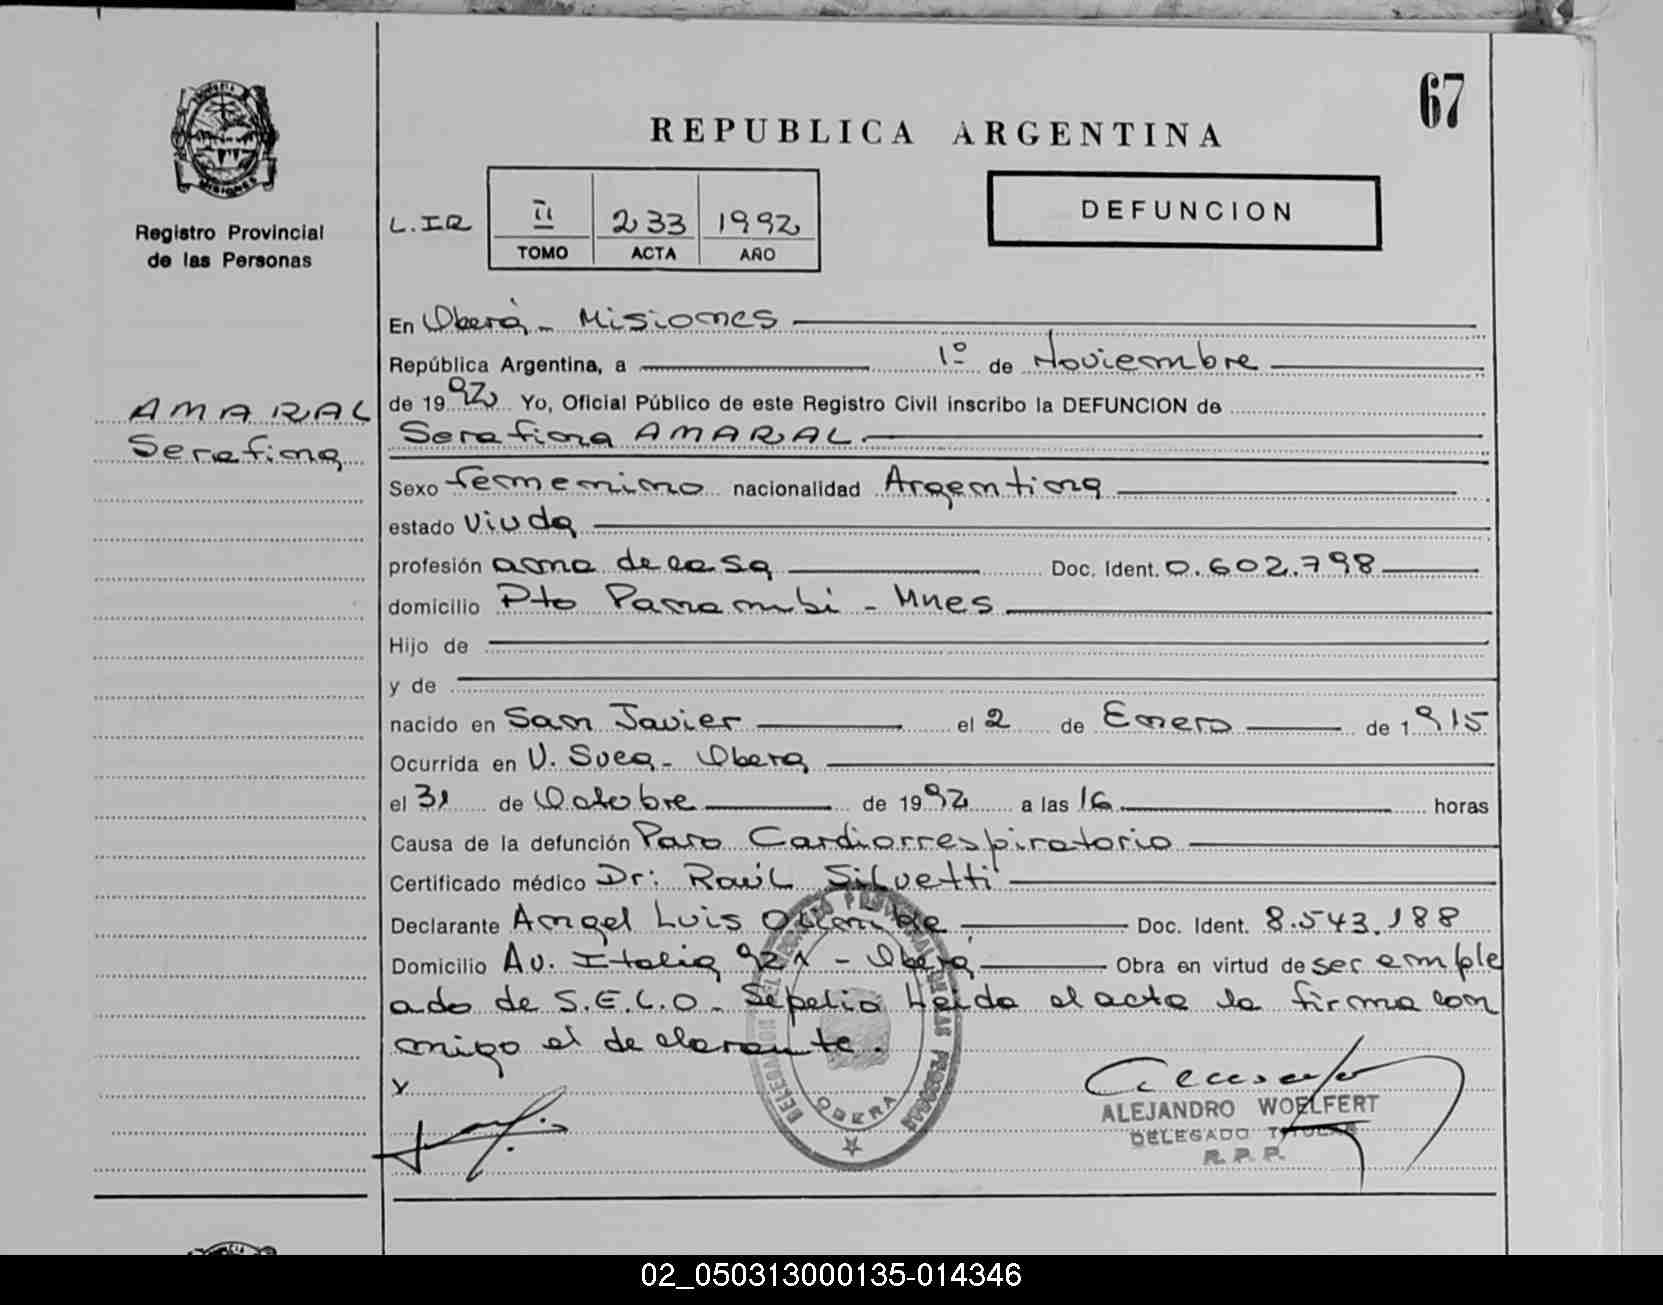 67
REPUBLICA ARGENTINA
MISIONES
Registro Provincial
de las Personas
L.IR
II 233 1992
TOMO ACTA AÑO
DEFUNCION
AMARAL
Serafina
En Oberá - Misiones
República Argentina, a 1º de Noviembre
de 1992 Yo, Oficial Público de este Registro Civil inscribo la DEFUNCION de
Serafina AMARAL
Sexo femenino nacionalidad Argentina
estado Viuda
profesión ama de casa Doc. Ident. 0.602.798
domicilio Pto Panambi - Mnes
Hijo de
y de
nacido en San Javier el 2 de Enero de 1915
Ocurrida en U. Sueca - Obera
el 31 de Octubre de 1992 a las 16 horas
Causa de la defunción Paro Cardiorrespiratorio
Certificado médico Dr: Raúl Silvetti
Declarante Angel Luis Doc. Ident. 8.543.188
Domicilio Av. Italia 921 - Oberá Obra en virtud de ser emple
ado de S.E.L.O. Sepelio Leida el acta la firma con
migo el declarante.
DELEGACION DEL REGISTRO PROVINCIAL DE LAS PERSONAS
OBERA
ALEJANDRO WOELFERT
DELEGADO TITULAR
R. P. P.
02_050313000135-014346